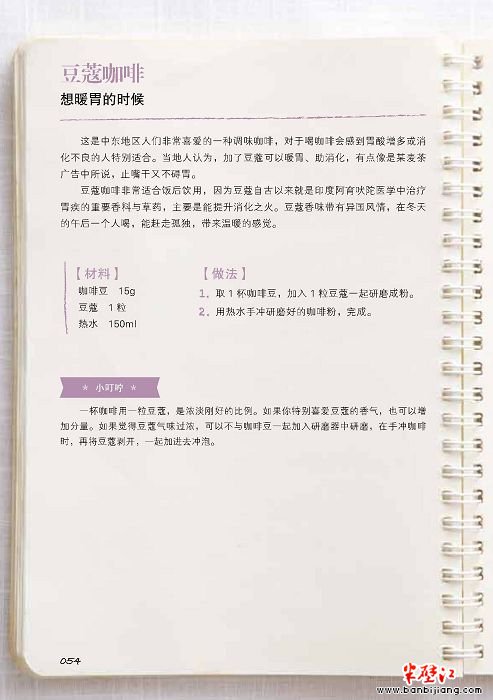 豆蔻咖啡
想暖胃的时候
这是中东地区人们非常喜爱的一种调味咖啡，对于喝咖啡会感到胃酸增多或消
化不良的人特别适合。当地人认为，加了豆蔻可以暖胃、助消化，有点像是某麦茶
广告中所说，止嘴干又不碍胃。
豆蔻咖啡非常适合饭后饮用，因为豆蔻自古以来就是印度阿育吠陀医学中治疗
胃疾的重要香料与草药，主要是能提升消化之火。豆蔻香味带有异国风情，在冬天
的午后一个人喝，能赶走孤独，带来温暖的感觉。
【材料】
咖啡豆 15g
豆蔻 1粒
热水 150ml
【做法】
1. 取1杯咖啡豆，加入1粒豆蔻一起研磨成粉。
2. 用热水手冲研磨好的咖啡粉，完成。
* 小叮咛 *
一杯咖啡用一粒豆蔻，是浓淡刚好的比例。如果你特别喜爱豆蔻的香气，也可以增
加分量。如果觉得豆蔻气味过浓，可以不与咖啡豆一起加入研磨器中研磨，在手冲咖啡
时，再将豆蔻剥开，一起加进去冲泡。
054
半壁江
www.banbijiang.com